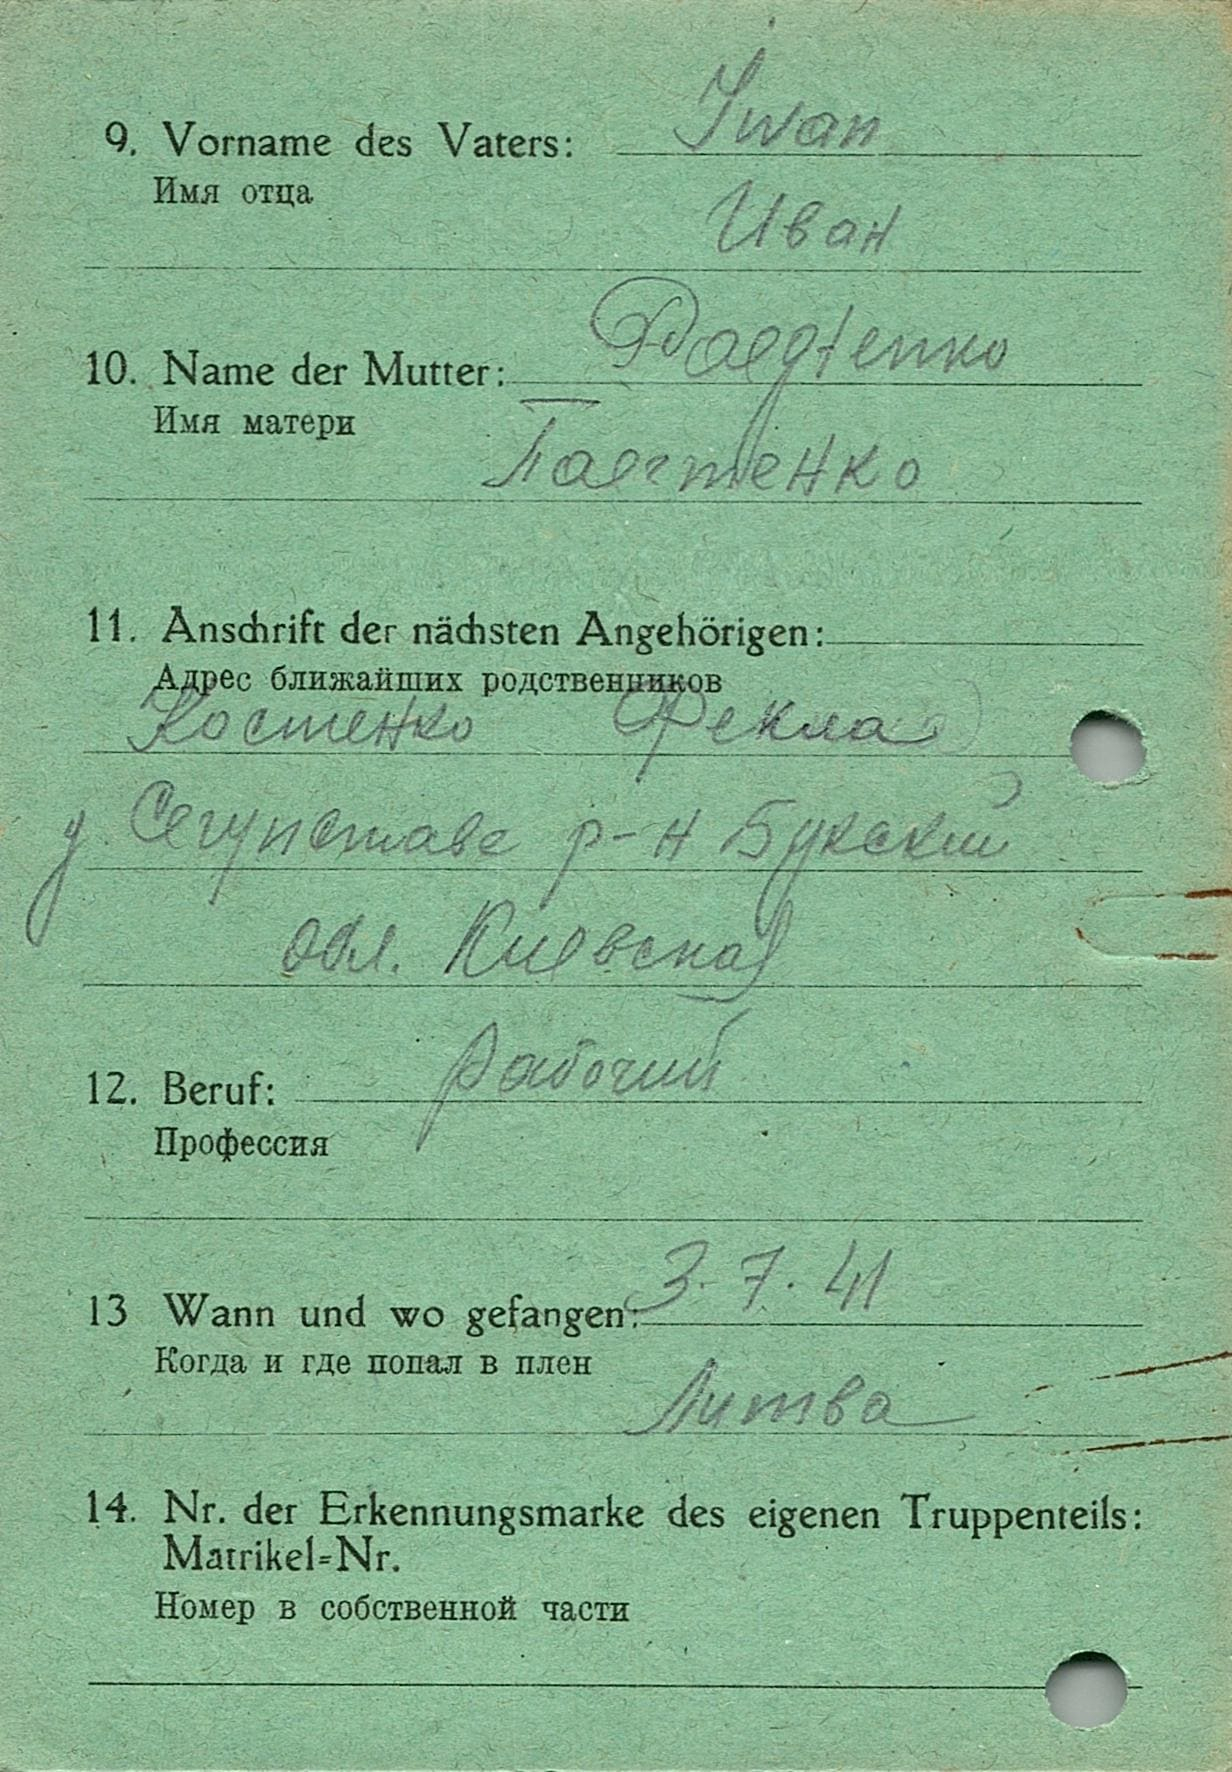 9. Vorname des Vaters: Iwan
Имя отца
Иван
10. Name der Mutter:
Имя матери
11. Anschrift der nächsten Angehörigen:
Адрес ближайших родственников
Костенко Фекла
р-н Букский
обл. Киевская
12. Beruf: рабочий
Профессия
13 Wann und wo gefangen: 3.7.41
Когда и где попал в плен
Литва
14. Nr. der Erkennungsmarke des eigenen Truppenteils:
Matrikel=Nr.
Номер в собственной части